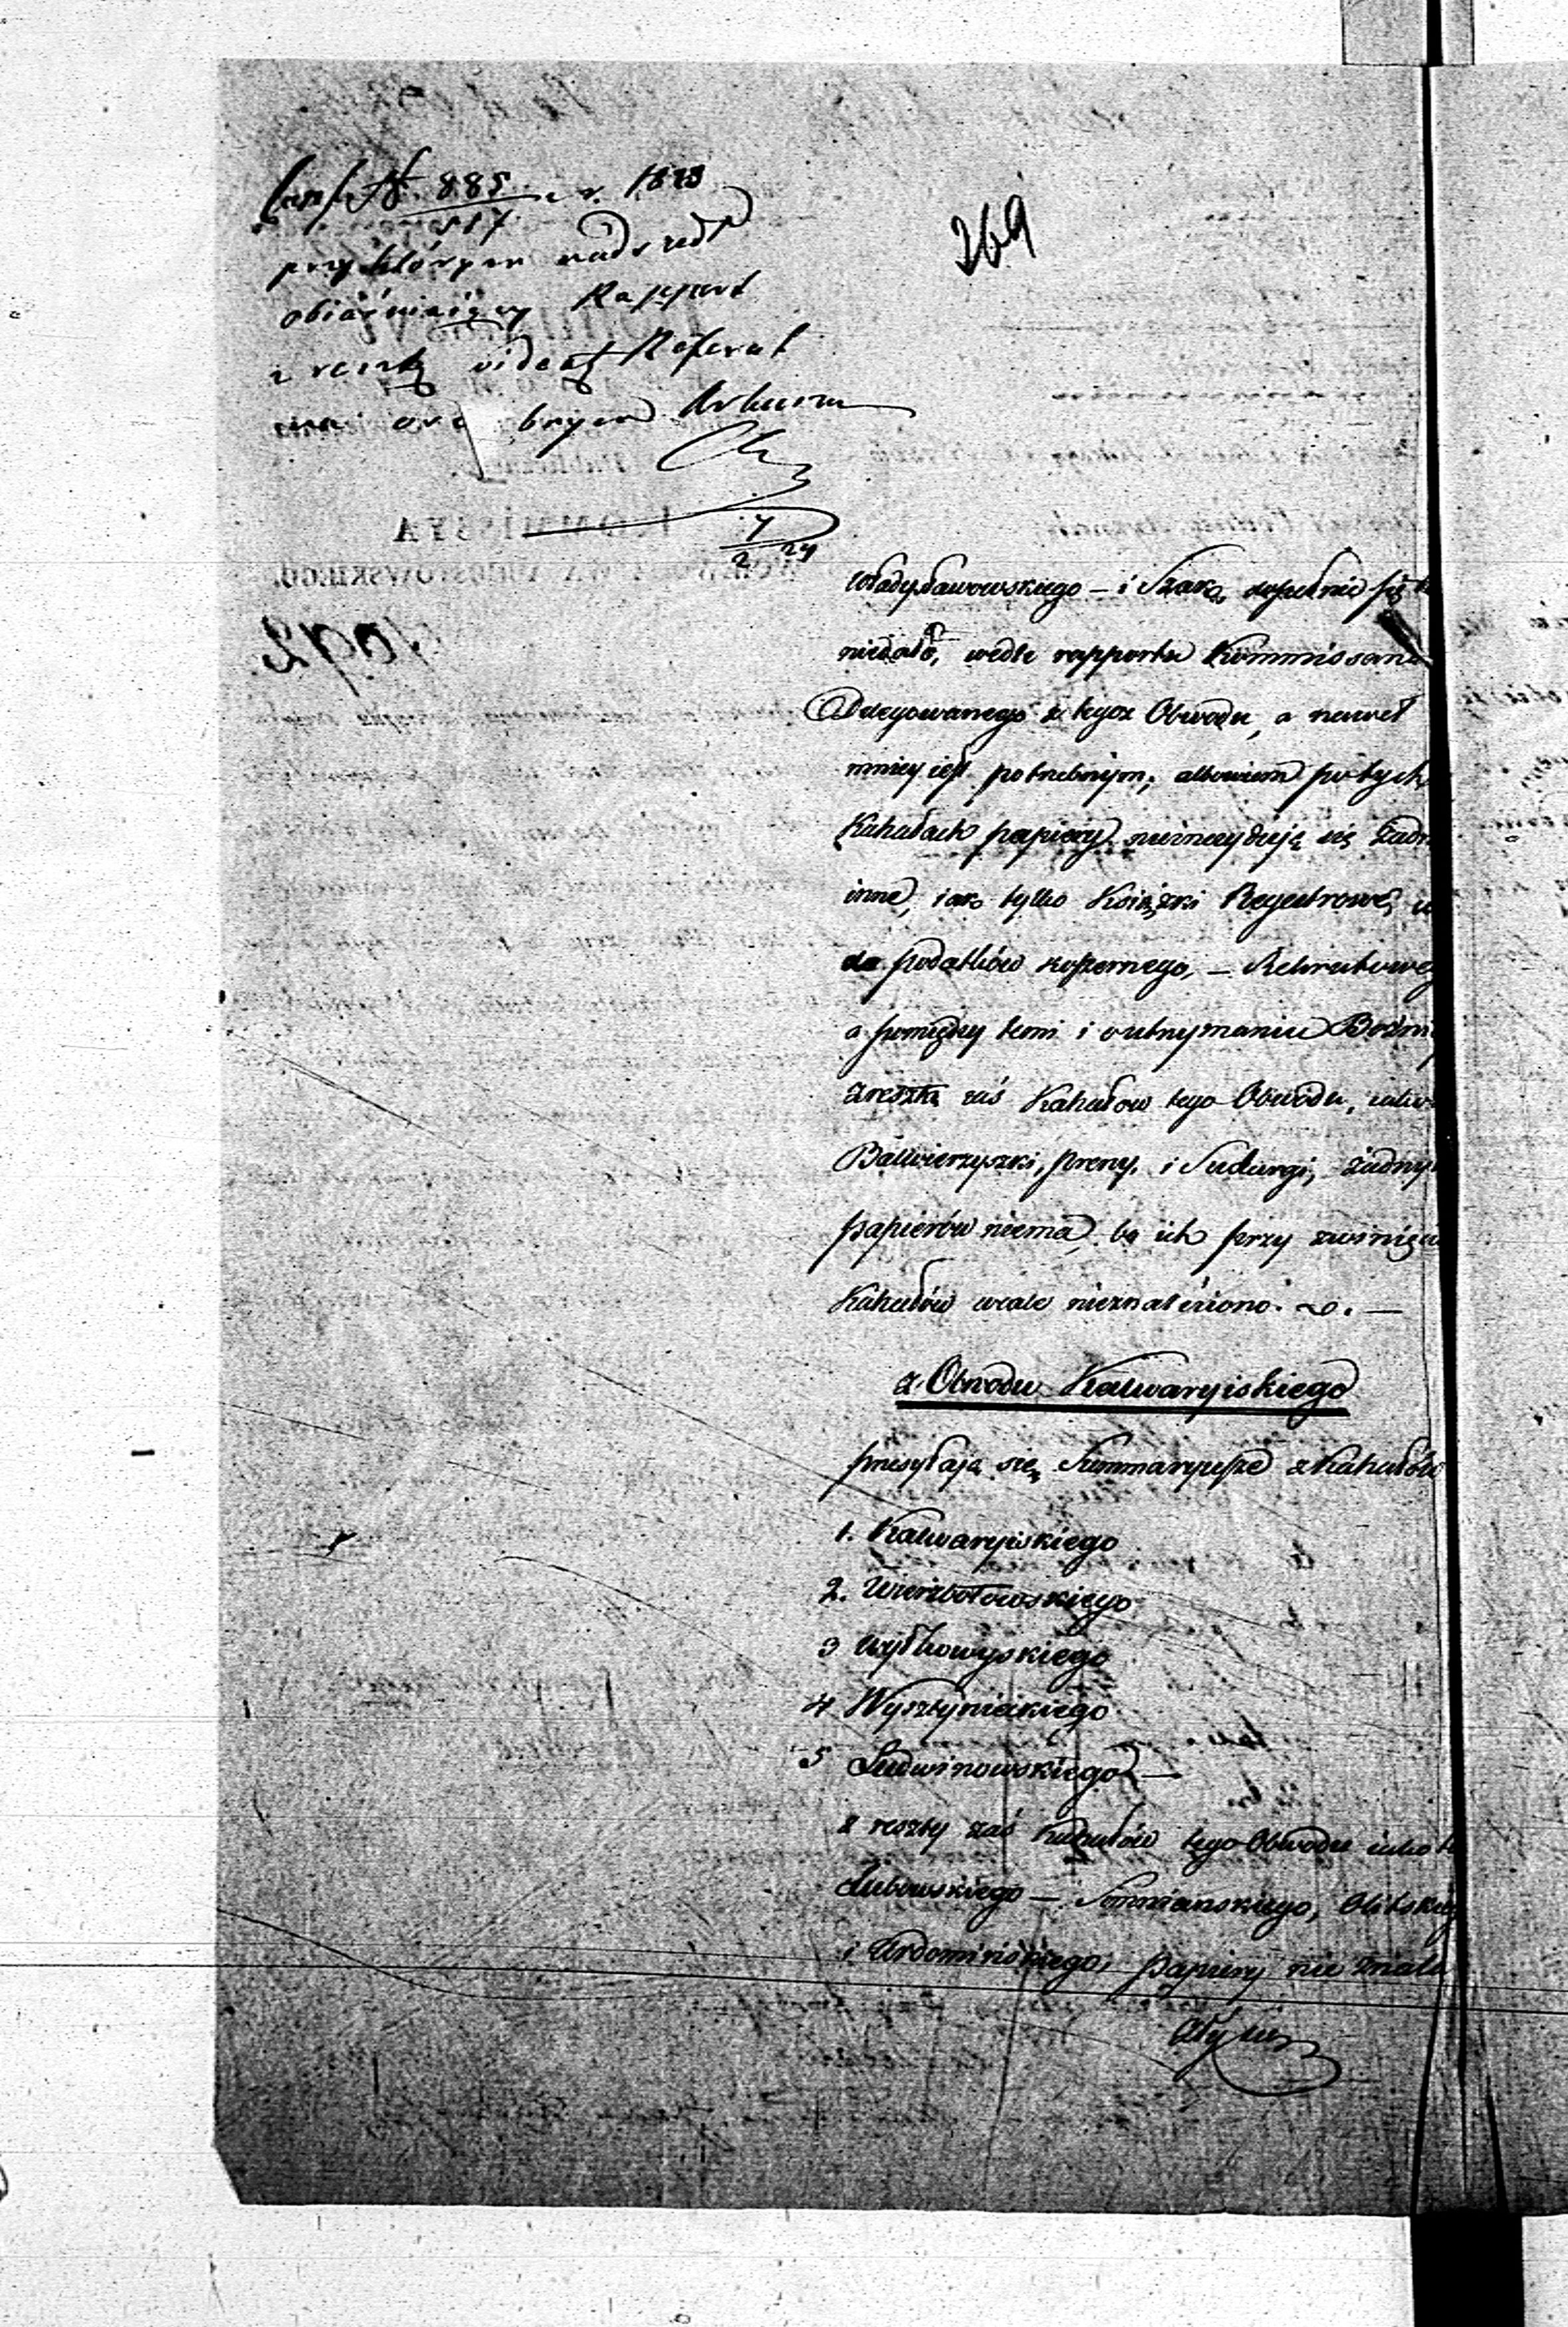 N 885 r. 1823
517
przy którym nadszedł
obiaśniaiący Rapport
z resztą videat Referat
269
7
2 24
Władysławowskiego – i Szaki, dopełnić się
niedało, wedle rapportu Kommissarza
Delegowanego z tegoż Obwodu, a nawet
mniey iest potrzebnym, albowiem po tych
Kahałach papiery nieznayduią się żadne
inne, iak tylko Książki Regestrowe,
do podatków koszernego, – Rekrutowego
a pomiędzy temi i o utrzymaniu Bożnic
zresztą zaś Kahałow tego Obwodu, iako
Balwierzyszki, Preny, i Sudargi, żadnych
papierów niema, bo ich przy zwinięciu
Kahałów wcale nieznaleziono. –
z Obwodu Kalwaryiskiego
przesyłaią się Summaryusze z Kahałów
1. Kalwaryiskiego
2. Wierzbołowskiego
3 Wyłkowyskiego
4 Wysztynieckiego
5 Ludwinowskiego –
z reszty zaś Kahałów tego Obwodu iako to
Lubowskiego – Simnianskiego, Olitskiego
i Urdomińskiego, papiery nie znale